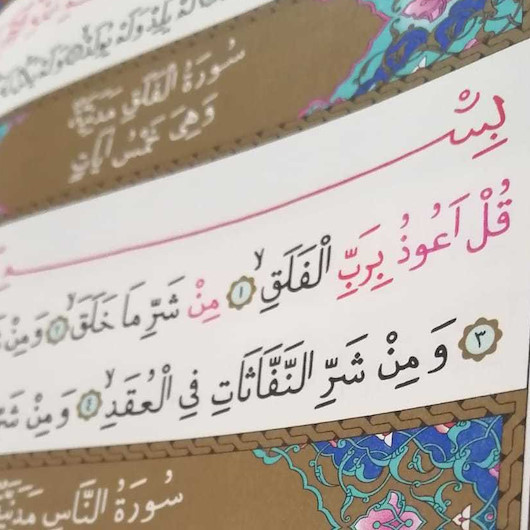 لَهُ
سُورَةُ الْفَلَقِ مَدَنِيَّةٌ
وَهِىَ خَمْسُ اٰيَاتٍ
بِسْـ
قُلْ اَعُوذُ بِرَبِّ الْفَلَقِۙ ﴿١﴾ مِنْ شَرِّ مَا خَلَقَۙ ﴿٢﴾ وَمِنْ
﴿٣﴾ وَمِنْ شَرِّ النَّفَّاثَاتِ فِي الْعُقَدِۙ ﴿٤﴾ وَمِنْ
سُورَةُ النَّاسِ مَدَنِيَّةٌ